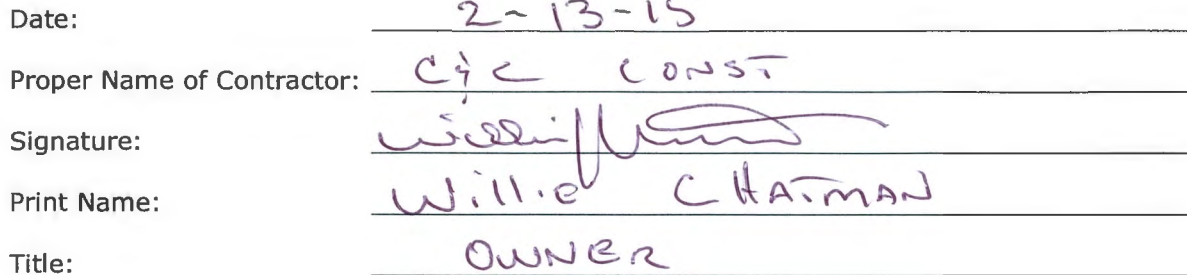 Date: 2-13-15
Proper Name of Contractor: C & C CONST
Signature:
Print Name: Willie CHATMAN
Title: OWNER